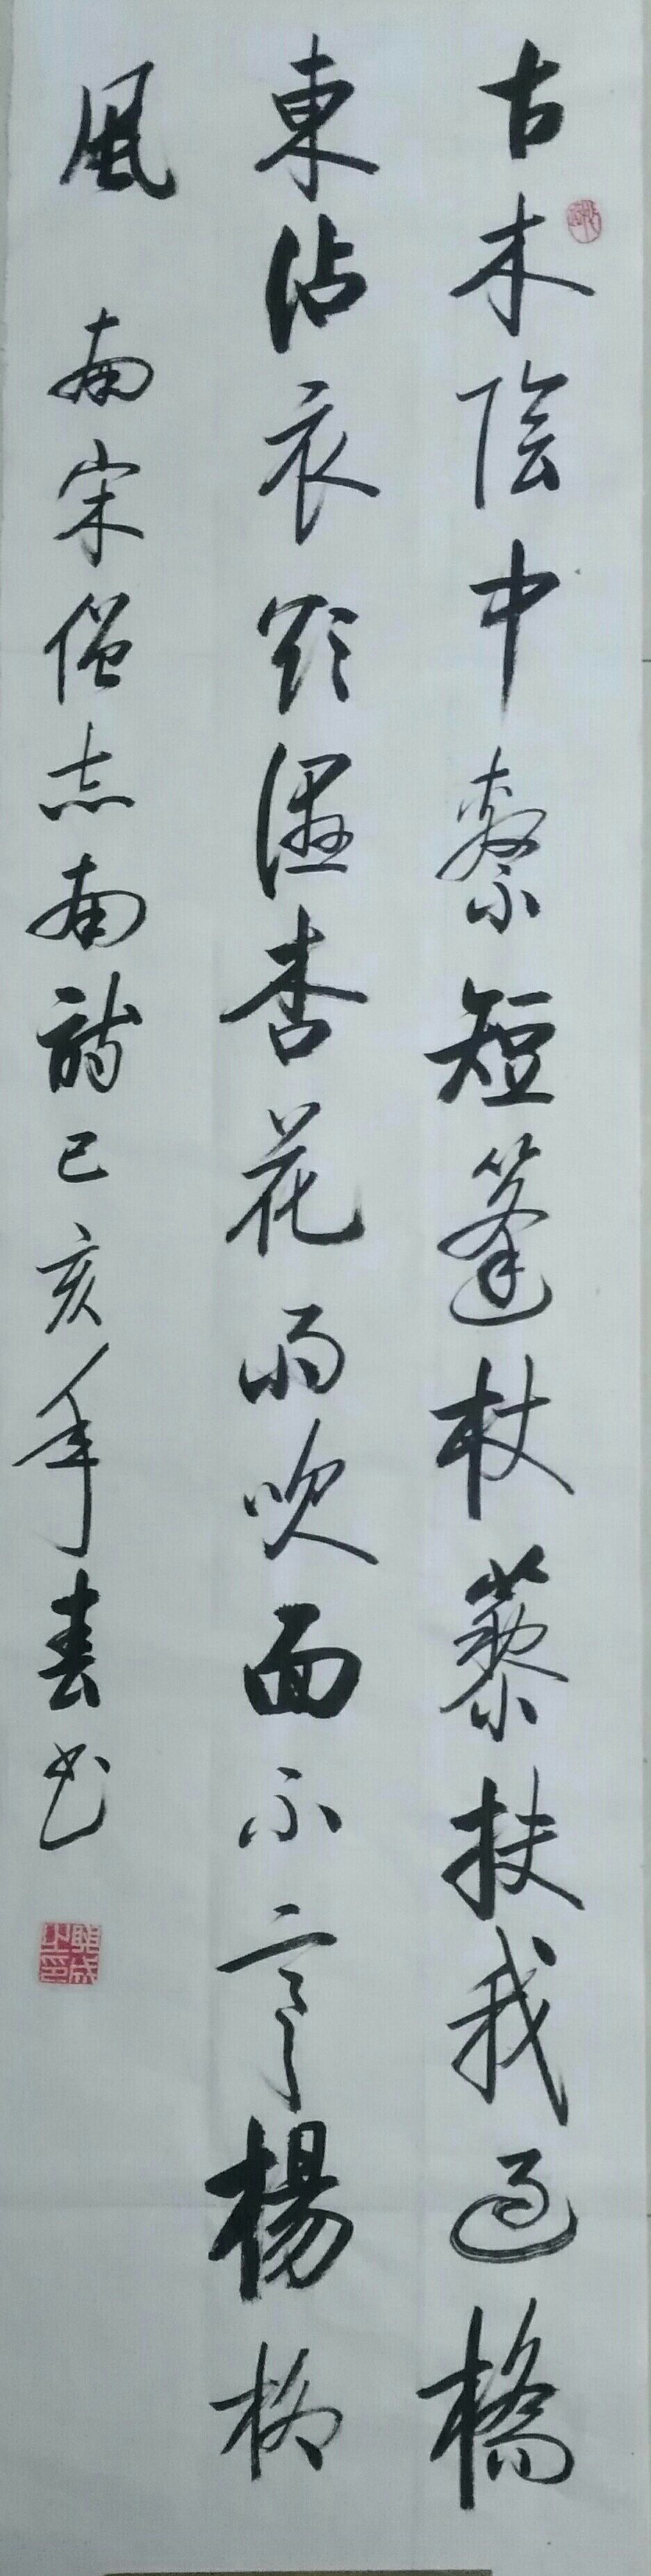 古木陰中繫短篷杖藜扶我過橋
東沾衣欲濕杏花雨吹面不寒楊柳
風 南宋僧志南詩己亥年春书